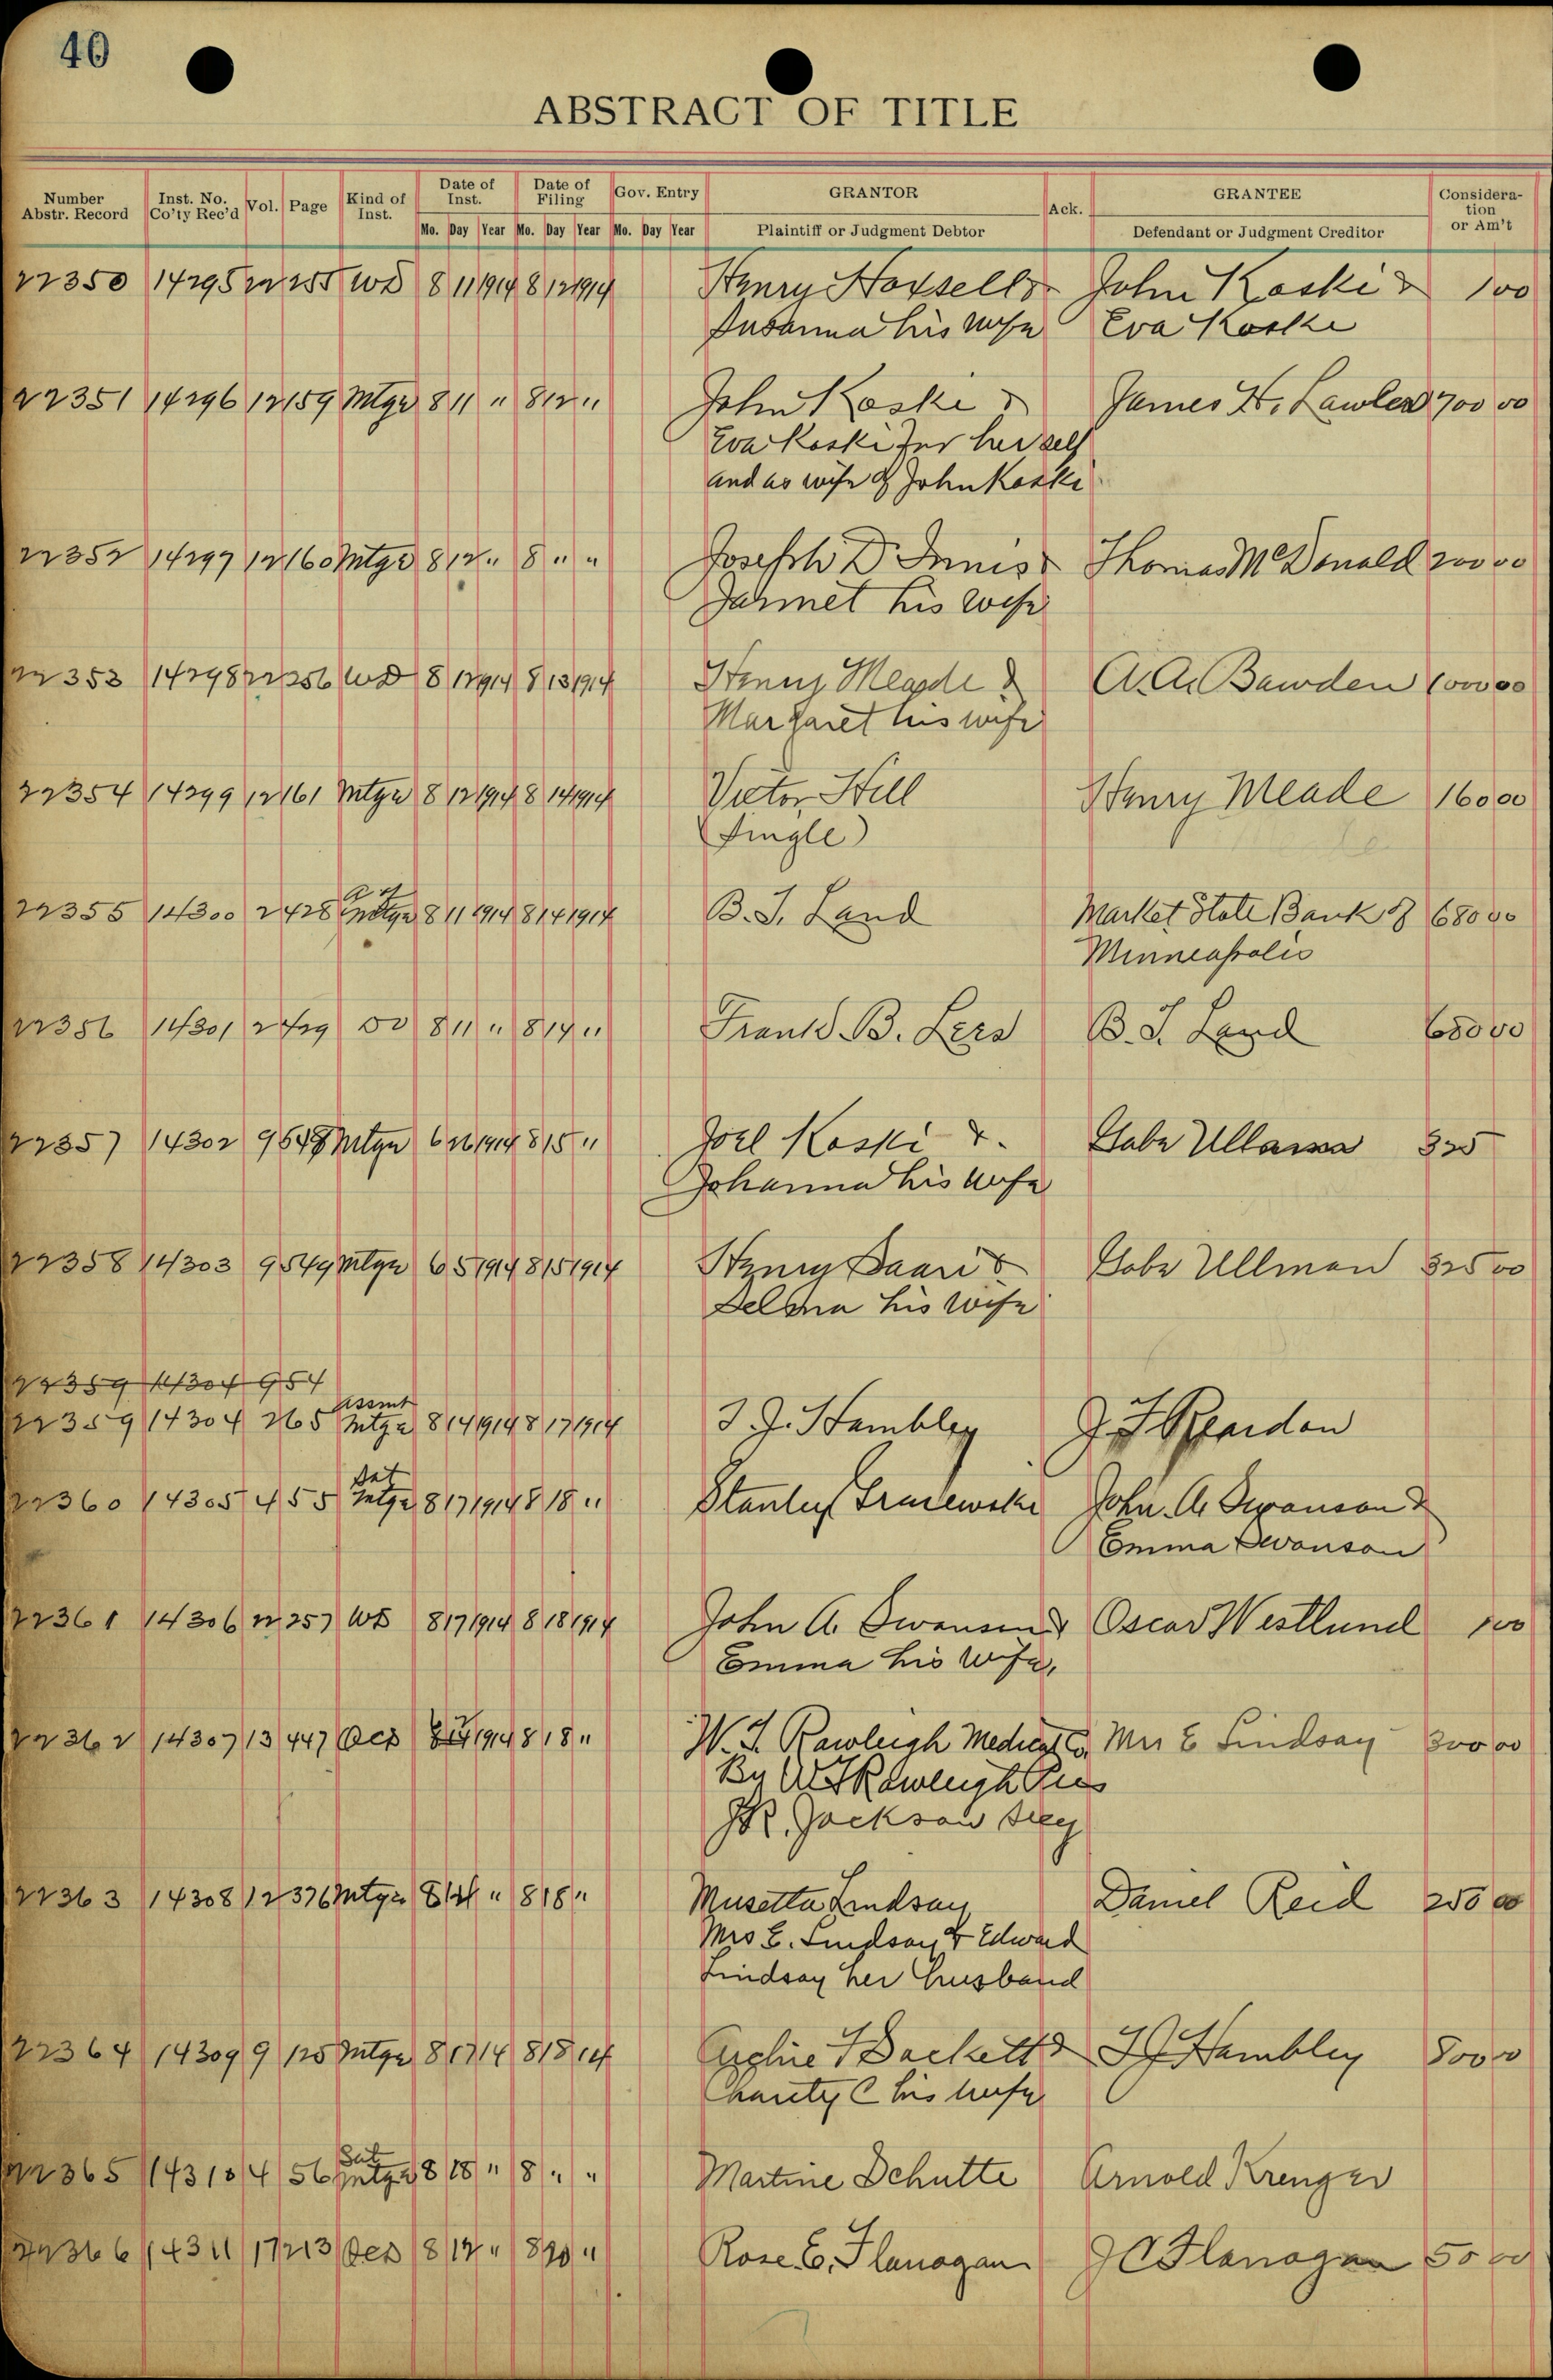 40
ABSTRACT OF TITLE
Number Abstr. Record Inst. No. Co'ty Rec'd Vol. Page Kind of Inst. Date of Inst. Date of Filing Gov. Entry GRANTOR Ack. GRANTEE Consideration or Am't
Mo. Day Year Mo. Day Year Mo. Day Year Plaintiff or Judgment Debtor Defendant or Judgment Creditor
22350 14295 22 255 WD 8 11 1914 8 12 1914 Henry & John Koski & 100
Susanna his wife Eva Koski
22351 14296 12 159 Mtge 8 11 " 8 12 " John Koski & James H. Lawler 700 00
Eva Koski for herself
and as wife of John Koski
22352 14297 12 160 Mtge 8 12 " 8 " " Joseph D Innis & Thomas McDonald 200 00
Jannet his wife
22353 14298 22 256 WD 8 12 1914 8 13 1914 Henry Meade & A. A. Bawden 1000 00
Margaret his wife
22354 14299 12 161 Mtge 8 12 1914 8 14 1914 Victor Hill Henry Meade 160 00
(Single)
22355 14300 2 428 Mtge 8 11 1914 8 14 1914 B. I. Land Market State Bank of 680 00
Minneapolis
22356 14301 2 429 DO 8 11 " 8 14 " Frank B. Lers B. I. Land 680 00
22357 14302 9 548 Mtge 6 26 1914 8 15 " Joel Koski & Gabe Ullman 325
Johanna his wife
22358 14303 9 549 Mtge 6 5 1914 8 15 1914 Henry Saari & Gabe Ullman 325 00
Selma his wife
22359 14304 954
Assmt
22359 14304 2 65 Mtge 8 14 1914 8 17 1914 I. J. Hambley J. F. Reardon
Sat
22360 14305 4 55 Mtge 8 17 1914 8 18 " Stanley John A Swanson &
Emma Swanson
22361 14306 22 257 WD 8 17 1914 8 18 1914 John A. Swanson & Oscar Westlund 100
Emma his wife,
22362 14307 13 447 QCD 1914 8 18 " W. T. Rawleigh Medical Co. Mrs E Lindsay 300 00
By W T Rawleigh Pres
J R. Jackson Secy
22363 14308 12 376 Mtge 8 " 8 18 " Musetta Lindsay Daniel Reid 250 00
Mrs E. Lindsay & Edward
Lindsay her husband
22364 14309 9 125 Mtge 8 17 14 8 18 14 Archie F Sackett & I J Hambley 800 00
Charity C his wife
Sat
22365 14310 4 56 Mtge 8 18 " 8 " " Martine Schutte Arnold Krenger
22366 14311 17 213 QCD 8 12 " 8 20 " Rose E. Flanagan J C Flanagan 50 00